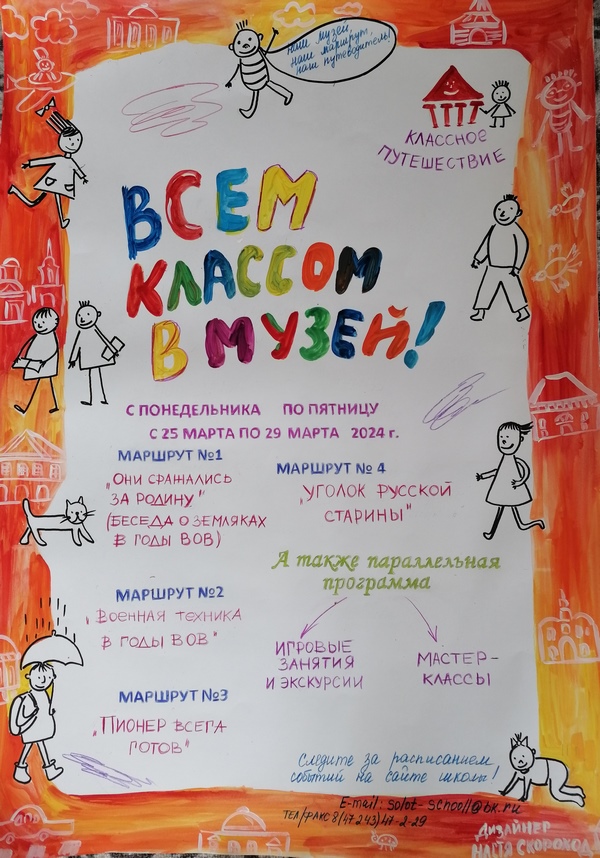 наш музей,
наш маршрут,
наш путеводитель!
КЛАССНОЕ
ПУТЕШЕСТВИЕ
ВСЕМ
КЛАССОМ
В МУЗЕЙ!
С ПОНЕДЕЛЬНИКА ПО ПЯТНИЦУ
С 25 МАРТА ПО 29 МАРТА 2024 г.
МАРШРУТ №1
„ОНИ СРАЖАЛИСЬ
ЗА РОДИНУ"
(БЕСЕДА О ЗЕМЛЯКАХ
В ГОДЫ ВОВ)
МАРШРУТ №2
„ВОЕННАЯ ТЕХНИКА
В ГОДЫ ВОВ"
МАРШРУТ №3
„ПИОНЕР ВСЕГДА
ГОТОВ"
МАРШРУТ № 4
„УГОЛОК РУССКОЙ
СТАРИНЫ"
А также параллельная
программа
ИГРОВЫЕ
ЗАНЯТИЯ
И ЭКСКУРСИИ
МАСТЕР-
КЛАССЫ
Следите за расписанием
событий на сайте школы!
E-mail: solot-school1@bk.ru
ТЕЛ/ФАКС 8(47243)47-2-29
ДИЗАЙНЕР
НАСТЯ СКОРОХОД